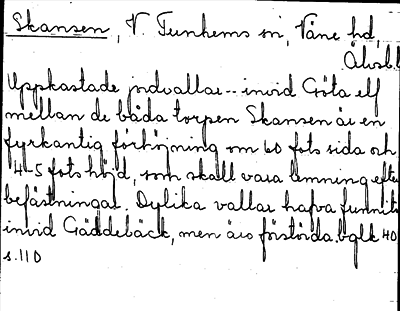 Skansen, V. Tunhems sn, Väne hd,
Älvsb.l
Uppkastade jordvallar -- invid Göta elf
mellan de båda torpen Skansen är en
fyrkantig förhöjning om 60 fots sida och
4-5 fots höjd, som skall vara lemning efter
befästningar. Dylika vallar hafva funnits
invid Gäddebäck, men äro förstörda.bglk 40
s.110